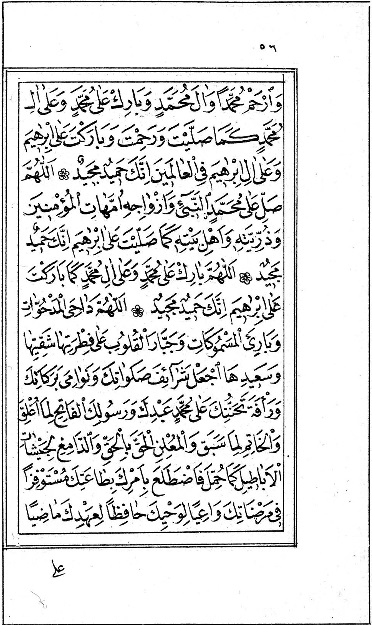 ٥٦
وَارْحَمْ مُحَمَّدًا وَآلَ مُحَمَّدٍ وَبَارِكْ عَلَى مُحَمَّدٍ وَعَلَى اٰلِ
مُحَمَّدٍ كَمَا صَلَّيْتَ وَرَحِمْتَ وَبَارَكْتَ عَلَى اِبْرٰهِيمَ
وَعَلَى اٰلِ اِبْرٰهِيمَ فِي الْعَالَمِينَ اِنَّكَ حَمِيدٌ مَجِيدٌ ۞ اَللّٰهُمَّ
صَلِّ عَلَى مُحَمَّدٍ النَّبِيِّ وَاَزْوَاجِهِ اُمَّهَاتِ الْمُؤْمِنِينَ
وَذُرِّيَّتِهِ وَاَهْلِ بَيْتِهِ كَمَا صَلَّيْتَ عَلَى اِبْرٰهِيمَ اِنَّكَ حَمِيدٌ
مَجِيدٌ ۞ اَللّٰهُمَّ بَارِكْ عَلَى مُحَمَّدٍ وَعَلَى اٰلِ مُحَمَّدٍ كَمَا بَارَكْتَ
عَلَى اِبْرٰهِيمَ اِنَّكَ حَمِيدٌ مَجِيدٌ ۞ اَللّٰهُمَّ دَاحِيَ الْمَدْحُوَّاتِ
وَبَارِئَ الْمَسْمُوكَاتِ وَجَبَّارَ الْقُلُوبِ عَلَى فِطْرَتِهَا شَقِيِّهَا
وَسَعِيدِهَا اجْعَلْ شَرَائِفَ صَلَوَاتِكَ وَنَوَامِيَ بَرَكَاتِكَ
وَرَأْفَةَ تَحَنُّنِكَ عَلَى مُحَمَّدٍ عَبْدِكَ وَرَسُولِكَ الْفَاتِحِ لِمَا اُغْلِقَ
وَالْخَاتِمِ لِمَا سَبَقَ وَالْمُعْلِنِ الْحَقَّ بِالْحَقِّ وَالدَّامِغِ لِجَيْشَاتِ
الْاَبَاطِيلِ كَمَا حُمِّلَ فَاضْطَلَعَ بِاَمْرِكَ بِطَاعَتِكَ مُسْتَوْفِزًا
فِي مَرْضَاتِكَ وَاعِيًا لِوَحْيِكَ حَافِظًا لِعَهْدِكَ مَاضِيًا
على